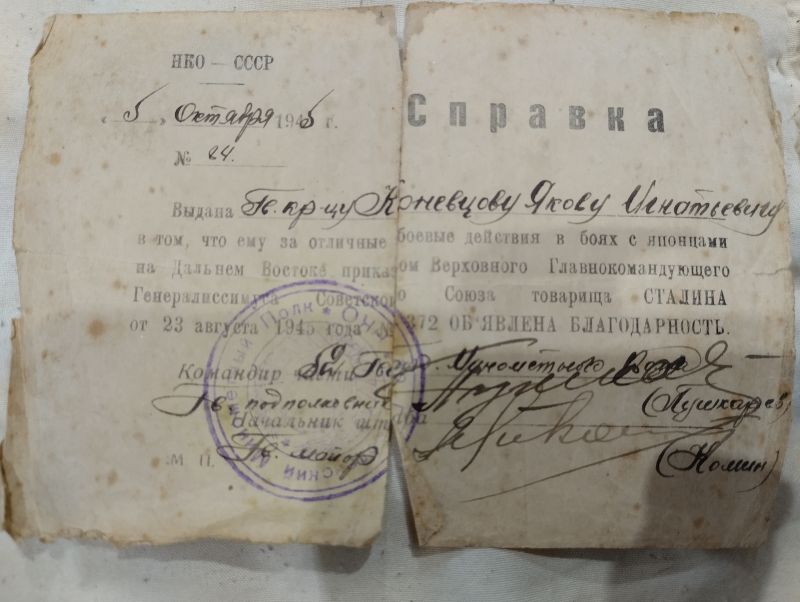 НКО — СССР
Справка
„ 5 „ Октября 1945 г.
№ 24.
Выдана Гв. кр-цу Коневцову Якову Игнатьевичу
в том, что ему за отличные боевые действия в боях с японцами
на Дальнем Востоке приказом Верховного Главнокомандующего
Генералиссимуса Советского Союза товарища СТАЛИНА
от 23 августа 1945 года № 372 ОБ'ЯВЛЕНА БЛАГОДАРНОСТЬ.
Командир части Гв. Минометного
Гв. подполковник (Пушкарев)
Начальник штаба
М. П. Гв. майор (Комин)
Полк